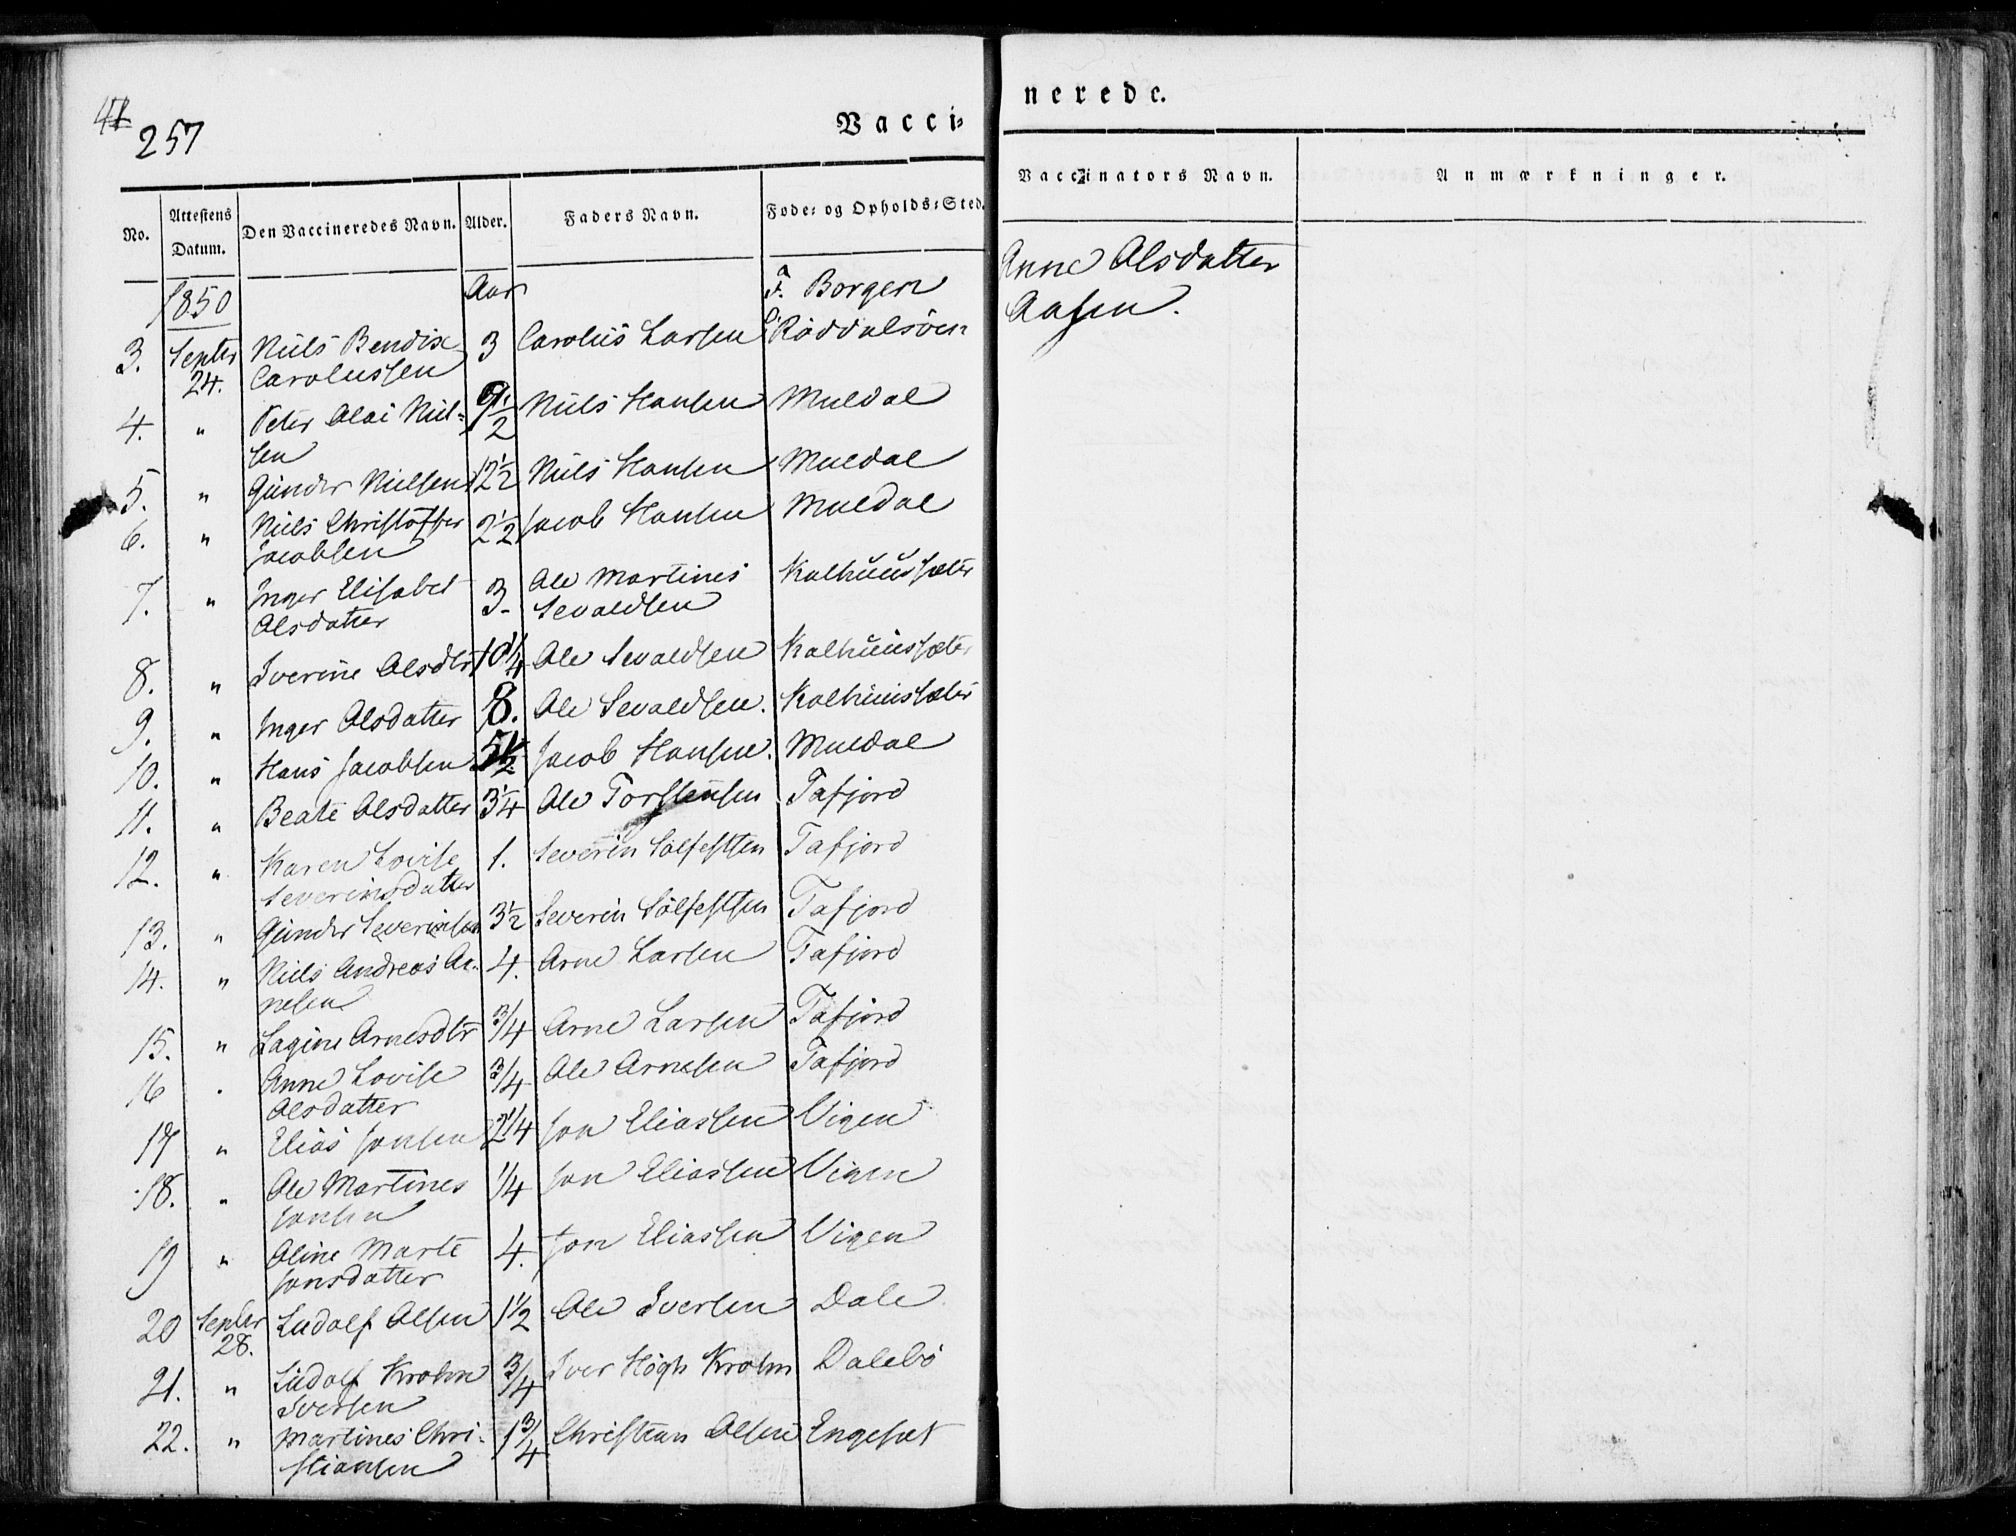 257
Vacci=
nerede.
No.
Attestens Datum.
Den Vaccineredes Navn.
Alder.
Faders Navn.
Føde= og Opholds=Sted.
Vaccinators Navn.
Anmærkninger.
1850
Aar
F. Borgen
Anne Olsdatter
Aasen.
3. Septbr Niels Bendix 3 Carolus Larsen O: Röddalsöen
24. Carolussen
4. " Peter Olai Niel= 9 1/2 Niels Hansen Muldal
sen
5. " Gunder Nielsen 12 1/2 Niels Hansen Muldal
6. " Niels Christoffer 2 1/2 Jacob Hansen Muldal
Jacobsen
7. " Inger Elisabet 3. Ole Martinus Kalhuussæter
Olsdatter Sevaldsen
8. " Iverine Olsdtr 10 1/4 Ole Sevaldsen Kalhuussæter
9. " Inger Olsdatter 8. Ole Sevaldsen. Kalhuussæter
10. " Hans Jacobsen 5 1/2 Jacob Hansen. Muldal
11. " Beate Olsdatter 3 1/4 Ole Torstensen Tafjord
12. " Karen Lovise 1. Severin Sölfestsen Tafjord
Severinsdatter
13. " Gunder Severinsen 3 1/2 Severin Sölfestsen Tafjord
14. " Niels Andreas Ar= 4. Arne Larsen Tafjord
nesen
15. " Lagine Arnesdtr 3/4 Arne Larsen Tafjord
16 " Anne Lovise 3/4 Ole Arnesen Tafjord
Olsdatter
17 " Elias Jonsen 2 1/4 Jon Eliassen Vigen
18. " Ole Martines 1/4 Jon Eliassen Vigen
Jonsen
19 " Oline Marte 4. Jon Eliassen Vigen
Jonsdatter
20 Septbr Ludolf Olsen 1 1/2 Ole Iversen Dale
28.
21. " Ludolf Krohn 3/4 Iver Högh Krohn Dalebö
Iversen
22. " Martines Chri= 1 3/4 Christian Olsen Engeset
stiansen